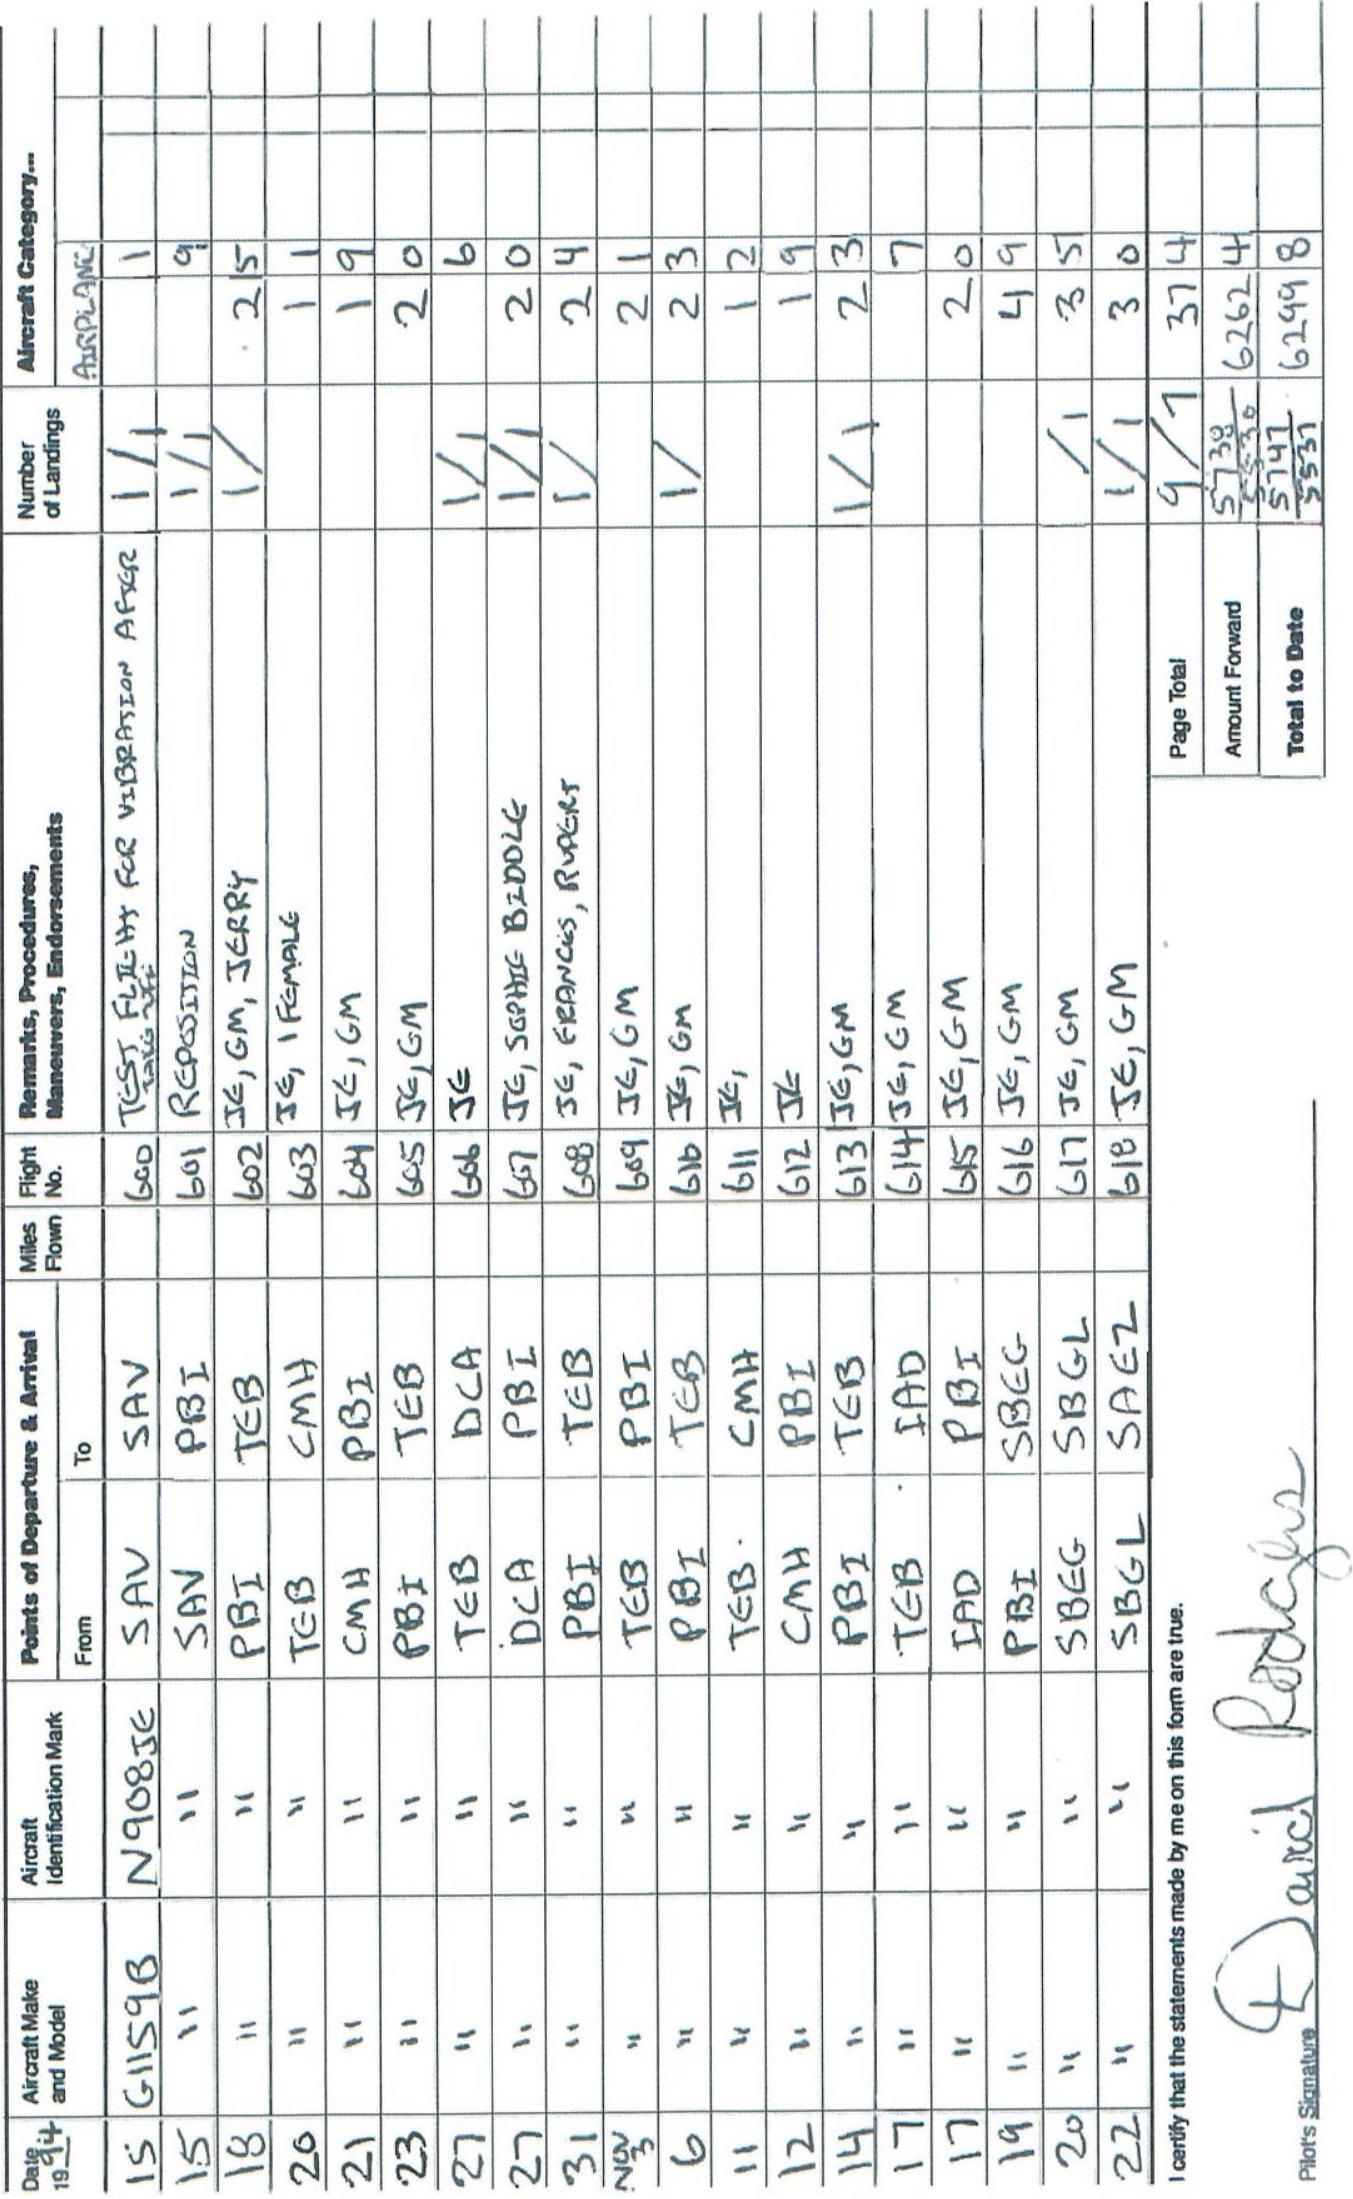 Date 19 94 Aircraft Make and Model Aircraft Identification Mark Points of Departure & Arrival From To Miles Flown Flight No. Remarks, Procedures, Maneuvers, Endorsements Number of Landings Aircraft Category... AIRPLANE
15 G1159B N908JE SAV SAV 600 TEST FLIGHT FOR VIBRATION AFTER 1/1 1 1
15 " " SAV PBI 601 REPOSITION 1/1 9
18 " " PBI TEB 602 JE, GM, JERRY 1/ 2 5
20 " " TEB CMH 603 JE, 1 FEMALE 1 1
21 " " CMH PBI 604 JE, GM 1 9
23 " " PBI TEB 605 JE, GM 2 0
27 " " TEB DCA 606 JE 1/1 6
27 " " DCA PBI 607 JE, SOPHIE BIDDLE 1/1 2 0
31 " " PBI TEB 608 JE, FRANCIS, RUPERT 1/ 2 4
NOV 3 " " TEB PBI 609 JE, GM 2 1
6 " " PBI TEB 610 JE, GM 1/ 2 3
11 " " TEB CMH 611 JE, 1 2
12 " " CMH PBI 612 JE 1 9
14 " " PBI TEB 613 JE, GM 1/1 2 3
17 " " TEB IAD 614 JE, GM 7
17 " " IAD PBI 615 JE, GM 2 0
19 " " PBI SBEG 616 JE, GM 4 9
20 " " SBEG SBGL 617 JE, GM /1 3 5
22 " " SBGL SAEZ 618 JE, GM 1/1 3 0
I certify that the statements made by me on this form are true.
Page Total 9/7 37 4
Amount Forward 5738 5530 6262 4
Total to Date 5747 5537 6299 8
Pilot's Signature David Rodgers